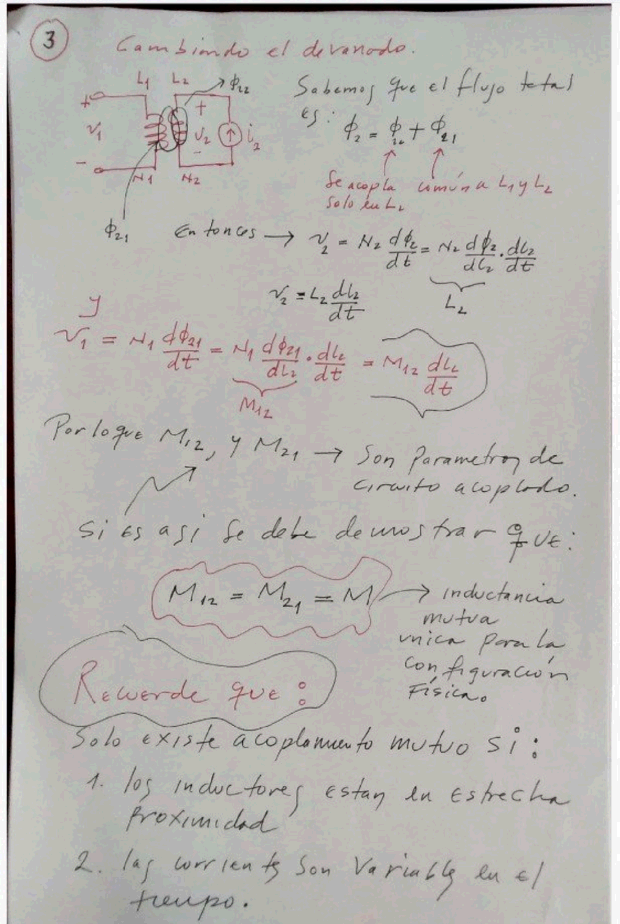 3
Cambiando el devanado.
L1 L2 ϕ22
+ + v1 v2 i2 - -
N1 N2
ϕ21
Sabemos que el flujo total
es:
ϕ2 = ϕ22 + ϕ21
Se acopla común a L1 y L2
Solo en L2
Entonces → v2 = N2 dϕ2/dt = N2 dϕ2/di2 . di2/dt
L2
v2 = L2 di2/dt
y
v1 = N1 dϕ21/dt = N1 dϕ21/di2 . di2/dt = M12 di2/dt
M12
Por lo que M12, y M21 → Son Parametros de
circuito acoplado.
Si es asi se debe demostrar que:
M12 = M21 = M → inductancia
mutua
unica para la
configuración
Física.
Recuerde que:
Solo existe acoplamiento mutuo si:
1. los inductores estan en estrecha
proximidad
2. las corrientes son variables en el
tiempo.